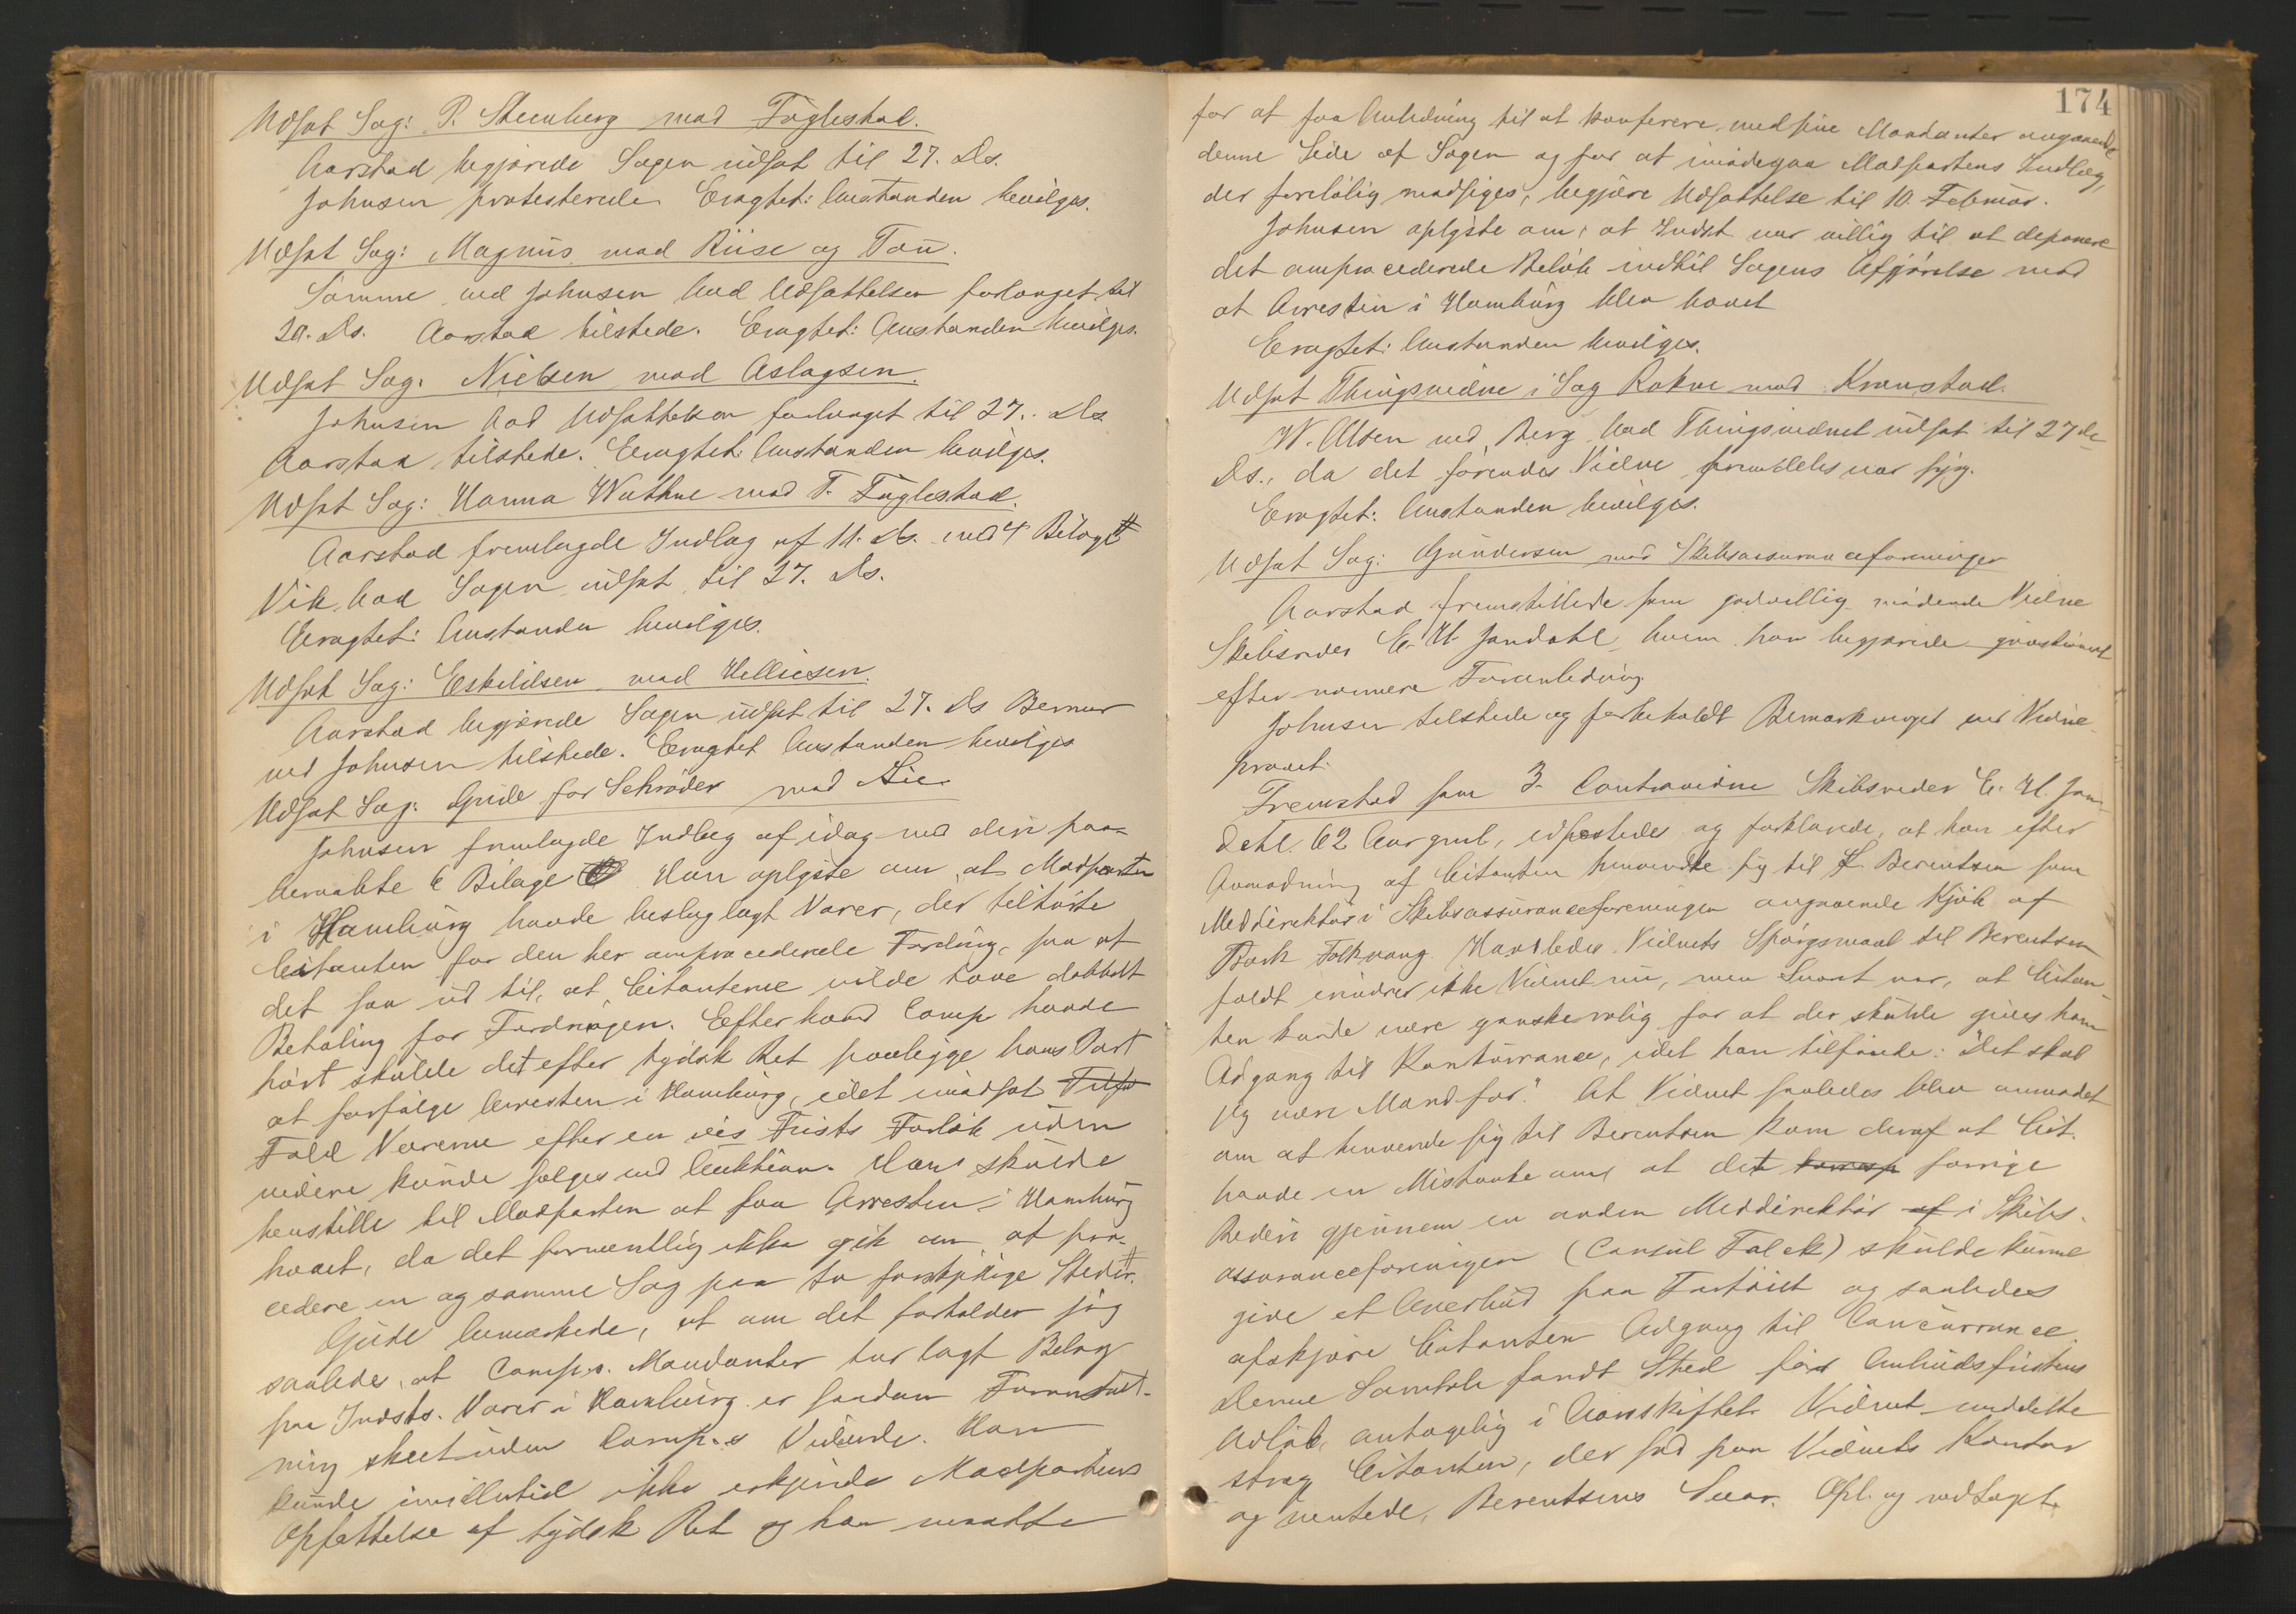 Udsat Sag: P. Steenberg mod Foglestad.
Aarstad begjærede Sagen udsat til 27. Ds.
Johnsen protesterede. Eragtet: Anstanden bevilges.
Udsat Sag: Magnus mod Riise og Tou.
Samme ved Johnsen bad Udsættelsen forlænget til
20. Ds. Aarstad tilstede. Eragtet: Anstanden bevilges.
Udsat Sag: Nielsen mod Aslagsen.
Johnsen bad Udsættelsen forlænget til 27. Ds
Aarstad tilstede. Eragtet: Anstanden bevilges.
Udsat Sag: Hanna Wathne mod T. Foglestad.
Aarstad fremlagde Indlæg af 11. Ds. med 4 Bilage #
Vik bad Sagen udsat til 27. Ds.
Eragtet: Anstanden bevilges.
Udsat Sag: Eskildsen mod Helliesen.
Aarstad begjærede Sagen udsat til 27. Ds Berner
ved Johnsen tilstede. Eragtet Anstanden bevilges
Udsat Sag: Gude for Schrøder mod Lie
Johnsen fremlagde Indlæg af idag med den paa-
beraabte 6 Bilage Han oplyste om at Modparten
i Hamburg havde beslaglagt Varer, der tilhørte
Citanten for den her omprocederede Fordring, saa at
det saa ud til, at Citanterne vilde have dobbelt
Betaling for Fordringen. Efter hvad Comp havde
hørt skulde det efter tydsk Ret paaligge hans Part
at forfølge Arresten i Hamburg, idet imodsat
Fald Varerne efter en vis Frists Forløb uden
videre kunde sælges ved Auktion. Han skulde
henstille til Modparten at faa Arresten i Hamburg
hævet, da det formentlig ikke gik an at pro-
cedere en og samme Sag paa to forskjellige Steder. #
Gude bemærkede, at om det forholder sig
saaledes, at Comp.s. Mandanter har lagt Beslag
paa Indsts. Varer i Hamburg er saadan Foranstalt-
ning skeet uden Comp.s Vidende. Han
kunde imidlertid ikke erkjende Modpartens
Opfattelse af tydsk Ret og han maatte
174
for at faa Anledning til at konferere med sine Mandanter angaaende
denne Side af Sagen og for at imødegaa Modpartens Indlæg,
der foreløbig modsiges, begjære Udsættelse til 10. Februar.
Johnsen oplyste om, at Indst var villig til at deponere
det omprocederede Beløb indtil Sagens Afgjørelse mod
at Arresten i Hamburg blev hævet
Eragtet: Anstanden bevilges.
Udsat Thingsvidne i Sag Rokne mod Kronstad.
W. Olsen ved Berg bad Thingsvidnet udsat til 27de
Ds., da det førendes Vidne fremdeles var syg.
Eragtet: Anstanden bevilges.
Udsat Sag: Gundersen mod Skibsassuranceforeningen
Aarstad fremstillede som godvillig mødende Vidne
Skibsreder E. H. Jandahl hvem han begjærede qvæstioneret
efter nærmere Foranledning.
Johnsen tilstede og forbeholdt Bemærkninger ved Vidne-
provet.
Fremstod som 3. Contravidne Skibsreder E. H. Jan-
dahl. 62 Aar gml, edfæstedes og forklarede, at han efter
Anmodning af Citanten henvendte sig til L. Berentsen som
Meddirektør i Skibsassuranceforeningen angaaende Kjøb af
Bark Folkvang. Hvorledes Vidnets Spørgsmaal til Berentsen
faldt erindrer ikke Vidnet nu, men Svaret var, at Citan-
ten kunde være ganske rolig for at der skulde gives ham
Adgang til Konkurrance, idet han tilføiede: "Det skal
jeg være Mand for." At Vidnet saaledes blev anmodet
om at henvende sig til Berentsen kom deraf at Cit.
havde en Mistanke om, at det forrige
Rederi gjennem en anden Meddirektør af i Skibs-
assuranceforeningen (Consul Falck) skulde kunne
give et Overbud paa Fartøiet og saaledes
afskjære Citanten Adgang til Concurrance.
Denne Samtale fandt Sted før Anbudsfristens
Udløb, antagelig i Aarsskiftet. Vidnet meddelte
strax Citanten, der sad paa Vidnets Kontor
og ventede, Berentsens Svar. Opl. og vedtaget.